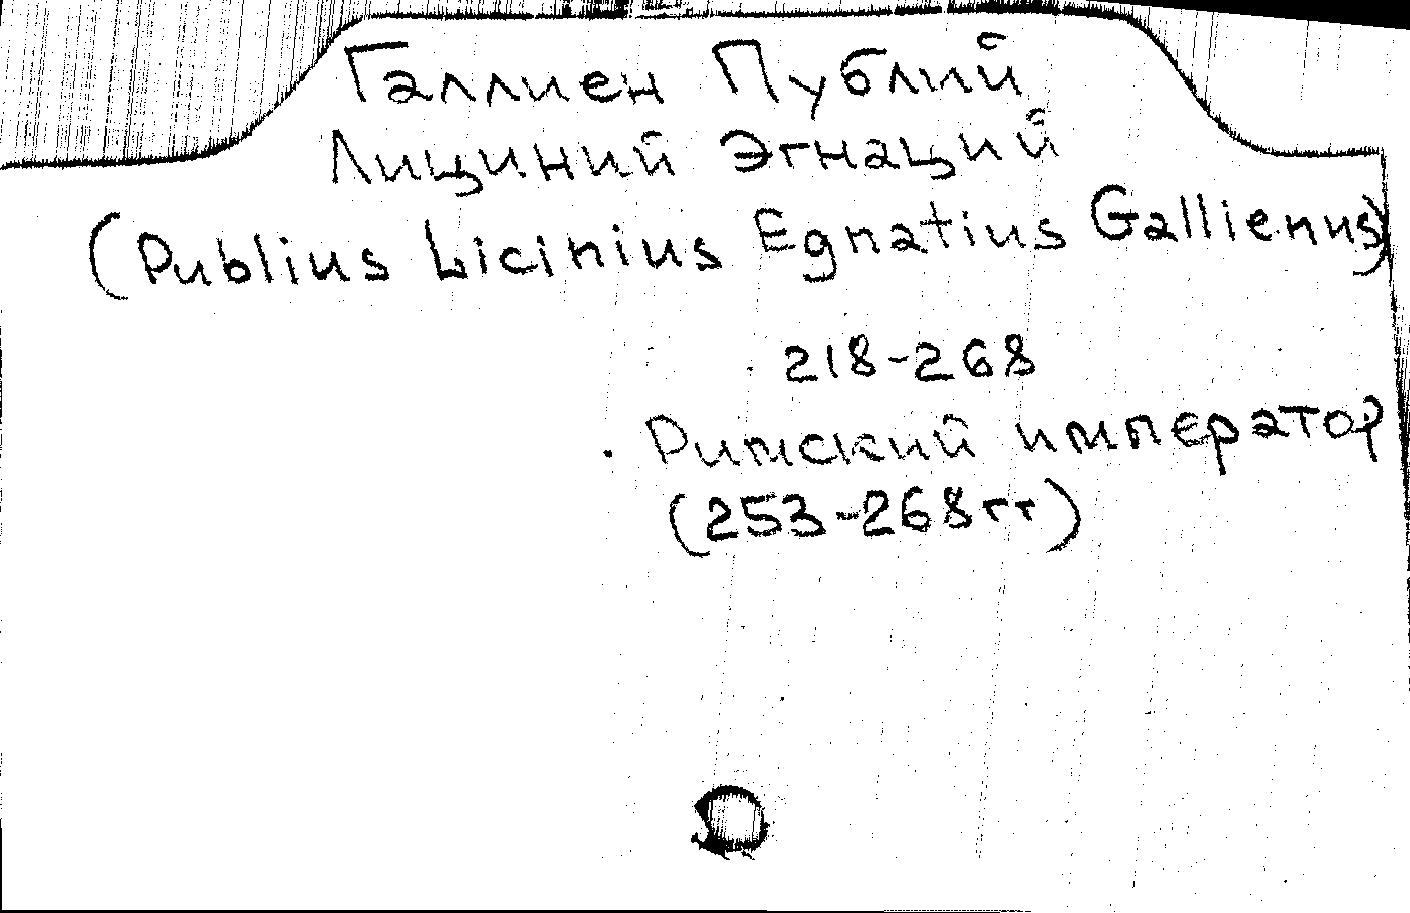 Галлиен Публий
Лициний Эгнаций
(Publius Licinius Egnatius Gallienus)
218-268
Римский император
(253-268гг)